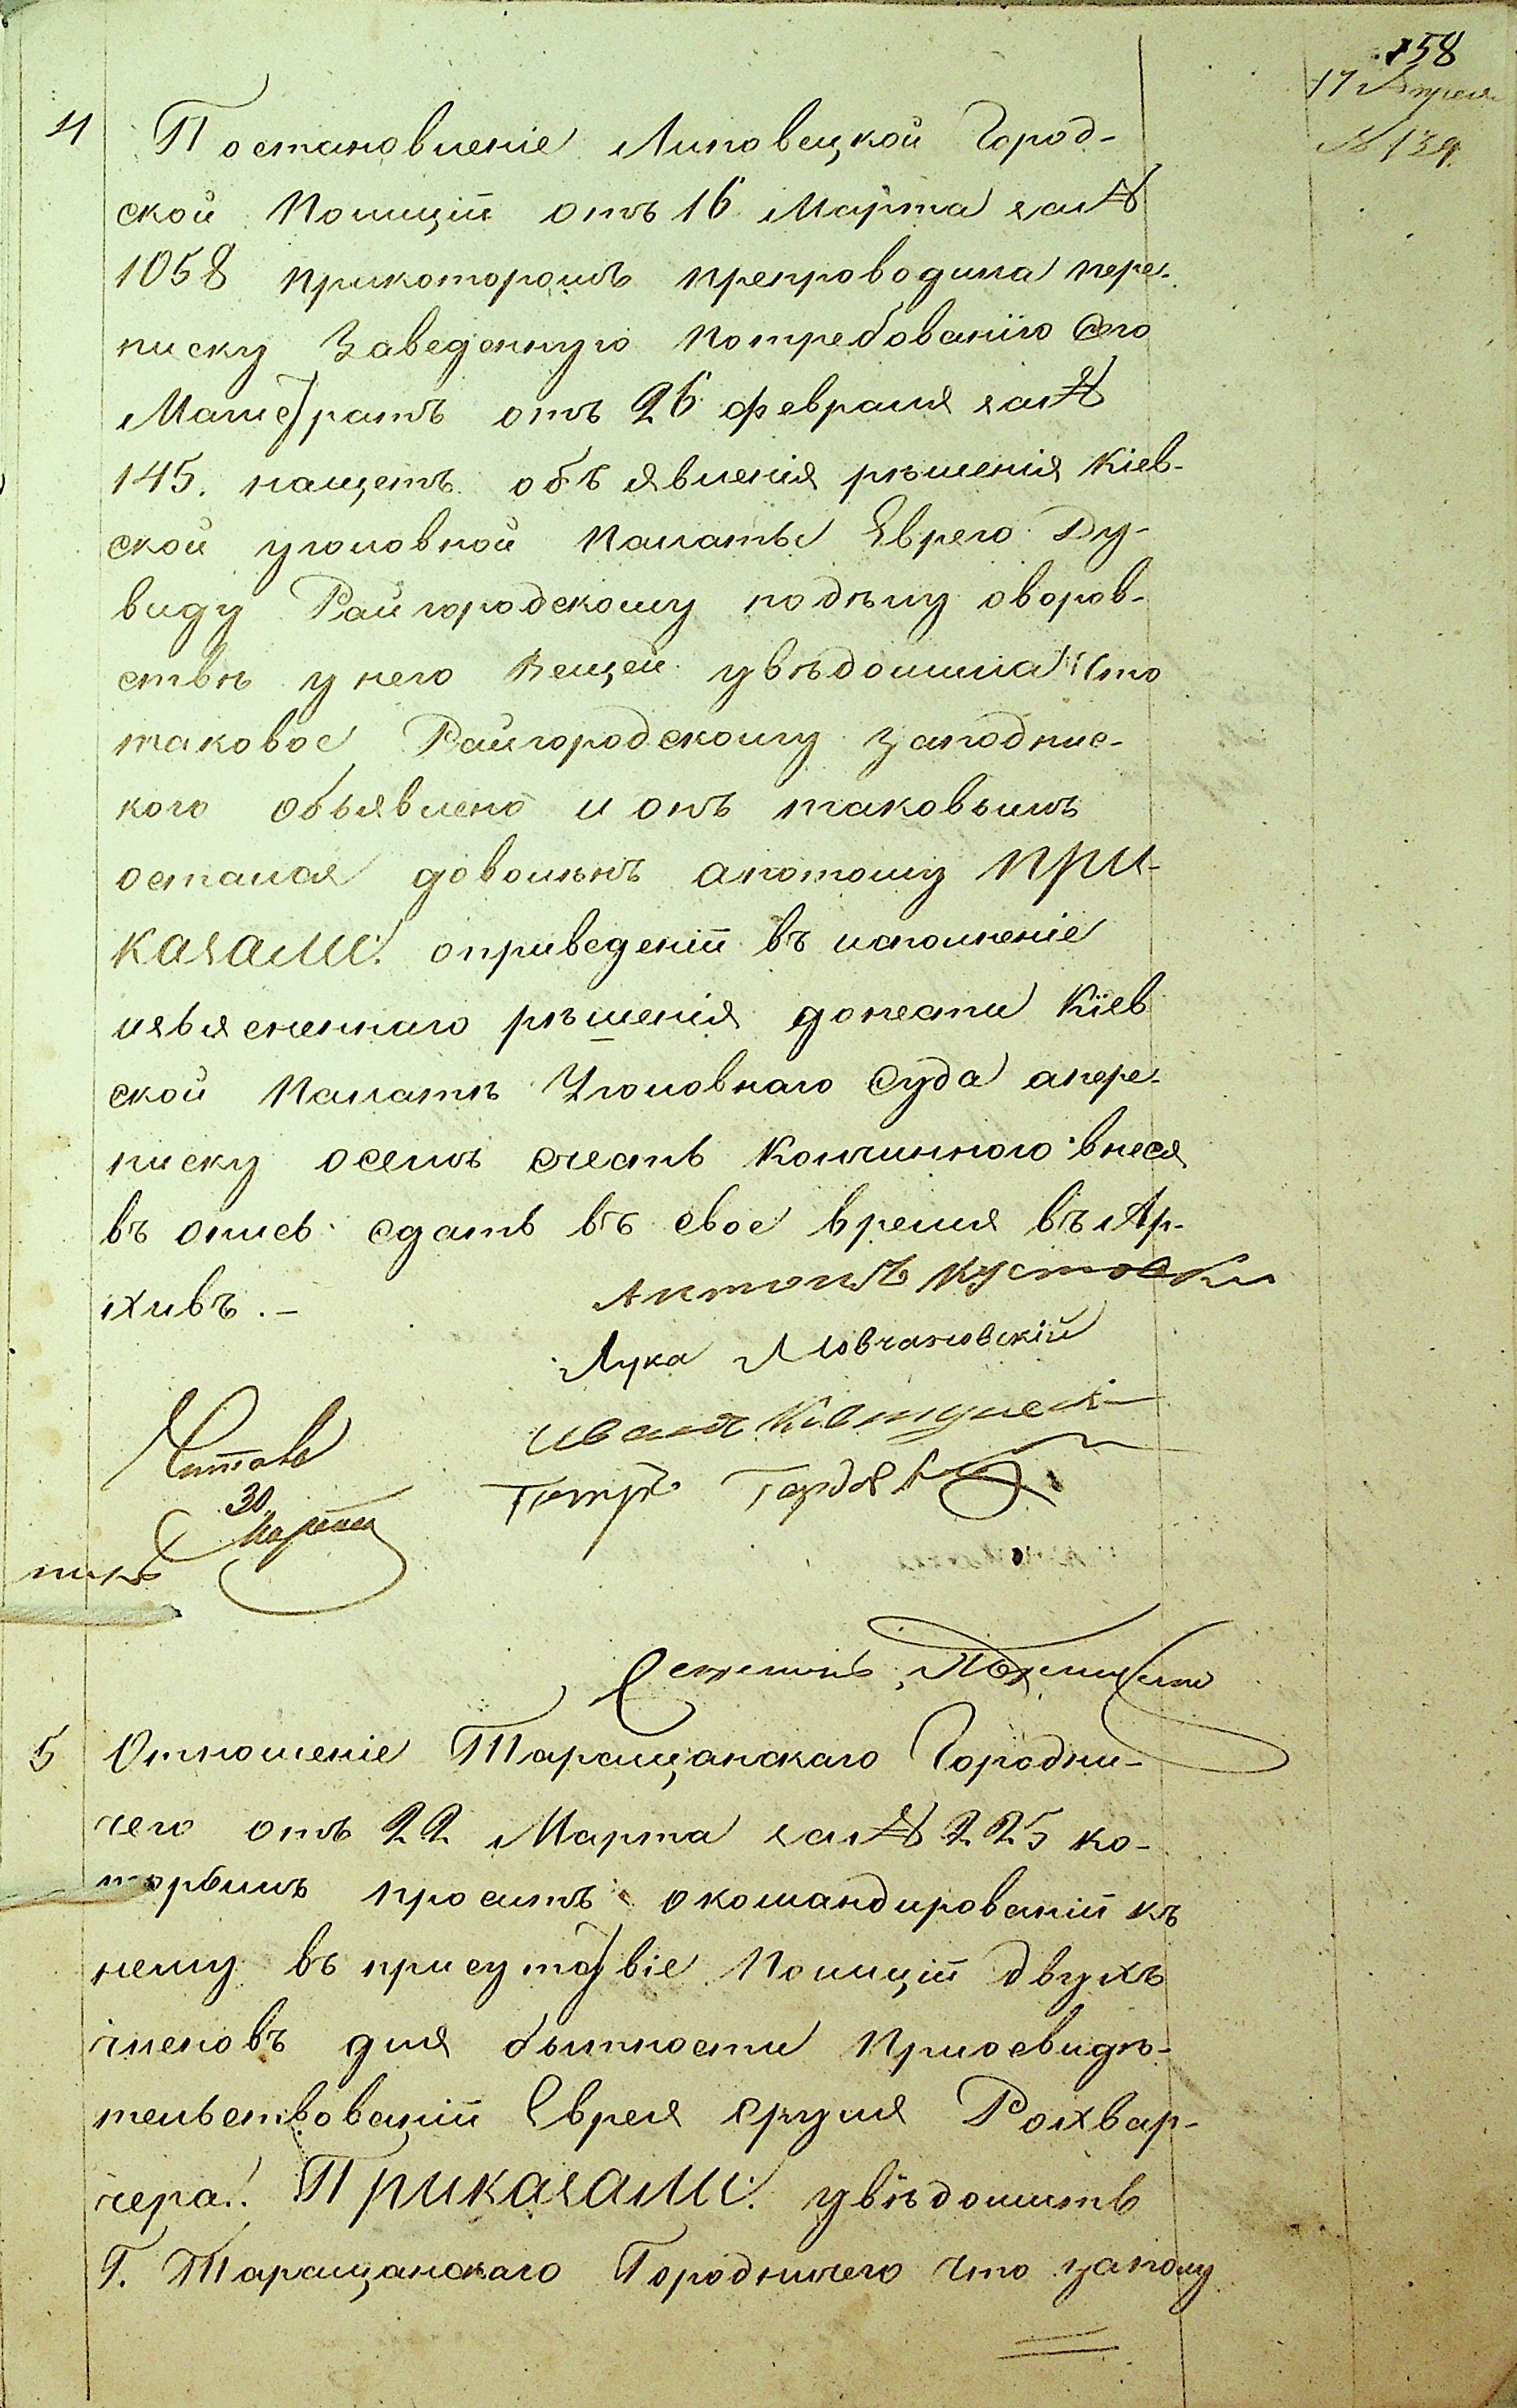 158
17 Апреля
№ 139.
4 Постановленіе Липовецкой Город-
ской Полиціи отъ 16 Марта за №
1058 прикоторомъ препроводила пере-
писку Заведенную Потребованїю Сего
Магистратъ отъ 26 февраля за №
145. нащетъ объявленія рѣшенія Кіев-
ской уголовной Палаты Еврею Ду-
виду Райгородскому подѣлу оворов-
ствѣ у него Вещей увѣдомила Что
таковое Райгородскому заподпис-
кою объявлено и онъ таковымъ
остался довольнъ апотому ПРИ-
КАЗАЛИ: оприведеніи въ исполненіе
изъясненнаго рѣшенія донести Кїев
ской Палатѣ Уголовнаго Суда апере-
писку осемъ счесть Контчинною внеся
въ опись сдать въ свое время въ Ар-
хивъ. –
Антонъ
Лука Мовчановскій
Иванъ
Петръ
Читалъ
30 Марта
5 Отношеніе Таращанскаго Городни-
чего отъ 22 Марта за № 225 ко-
торымъ проситъ окомандированіи къ
нему въ присутствіе Полиціи двухъ
членовъ для бытности Приосвидѣ-
тельствованіи Еврея Сруля Рохвар-
чера. ПРИКАЗАЛИ: увѣдомить
Г. Таращанскаго Городничего что запому